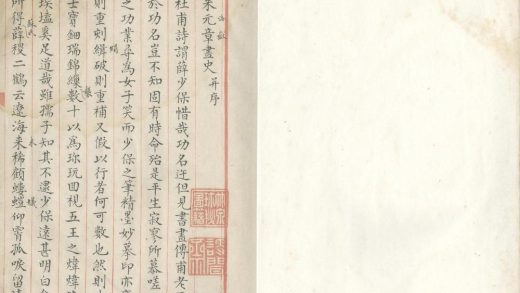 米元章畫史 并序
杜甫詩謂薛少保惜哉功名迕但見書畫傳甫老
於功名豈不知固有時命殆是平生寂寥所慕嗟
之功業尋為女子笑而少保之筆精墨妙摹印亦
則重刺緝破則重補又假以行者何可數也然則
士寶鈿瑞錦繅數十以為珍玩囬視五王之煒煒
埃壒奚足道哉雖孺子知其不逮少保遠甚明白
所得薛稷二鶴云遼海来稀顧螻螘仰霄孤唳留